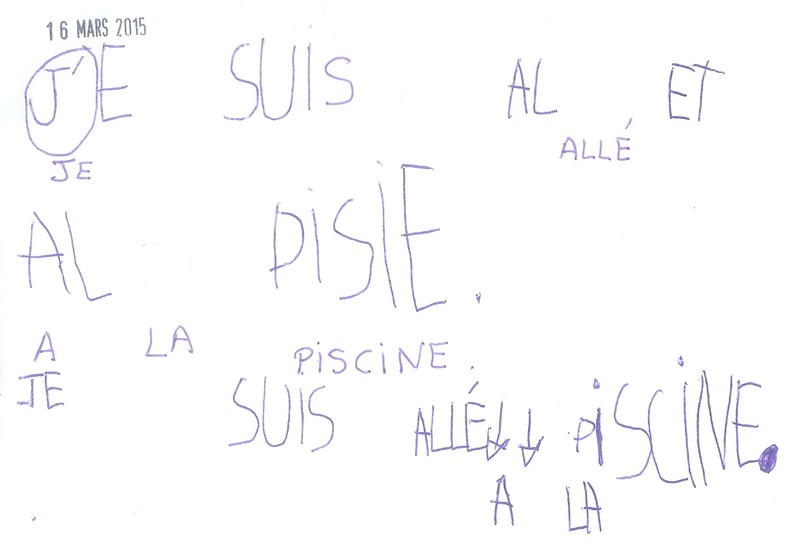 16 MARS 2015
J'E SUIS AL ET
JE ALLÉ
AL PISIE.
A LA PISCINE.
JE SUIS ALLÉ↓↓ PISCINE.
A LA